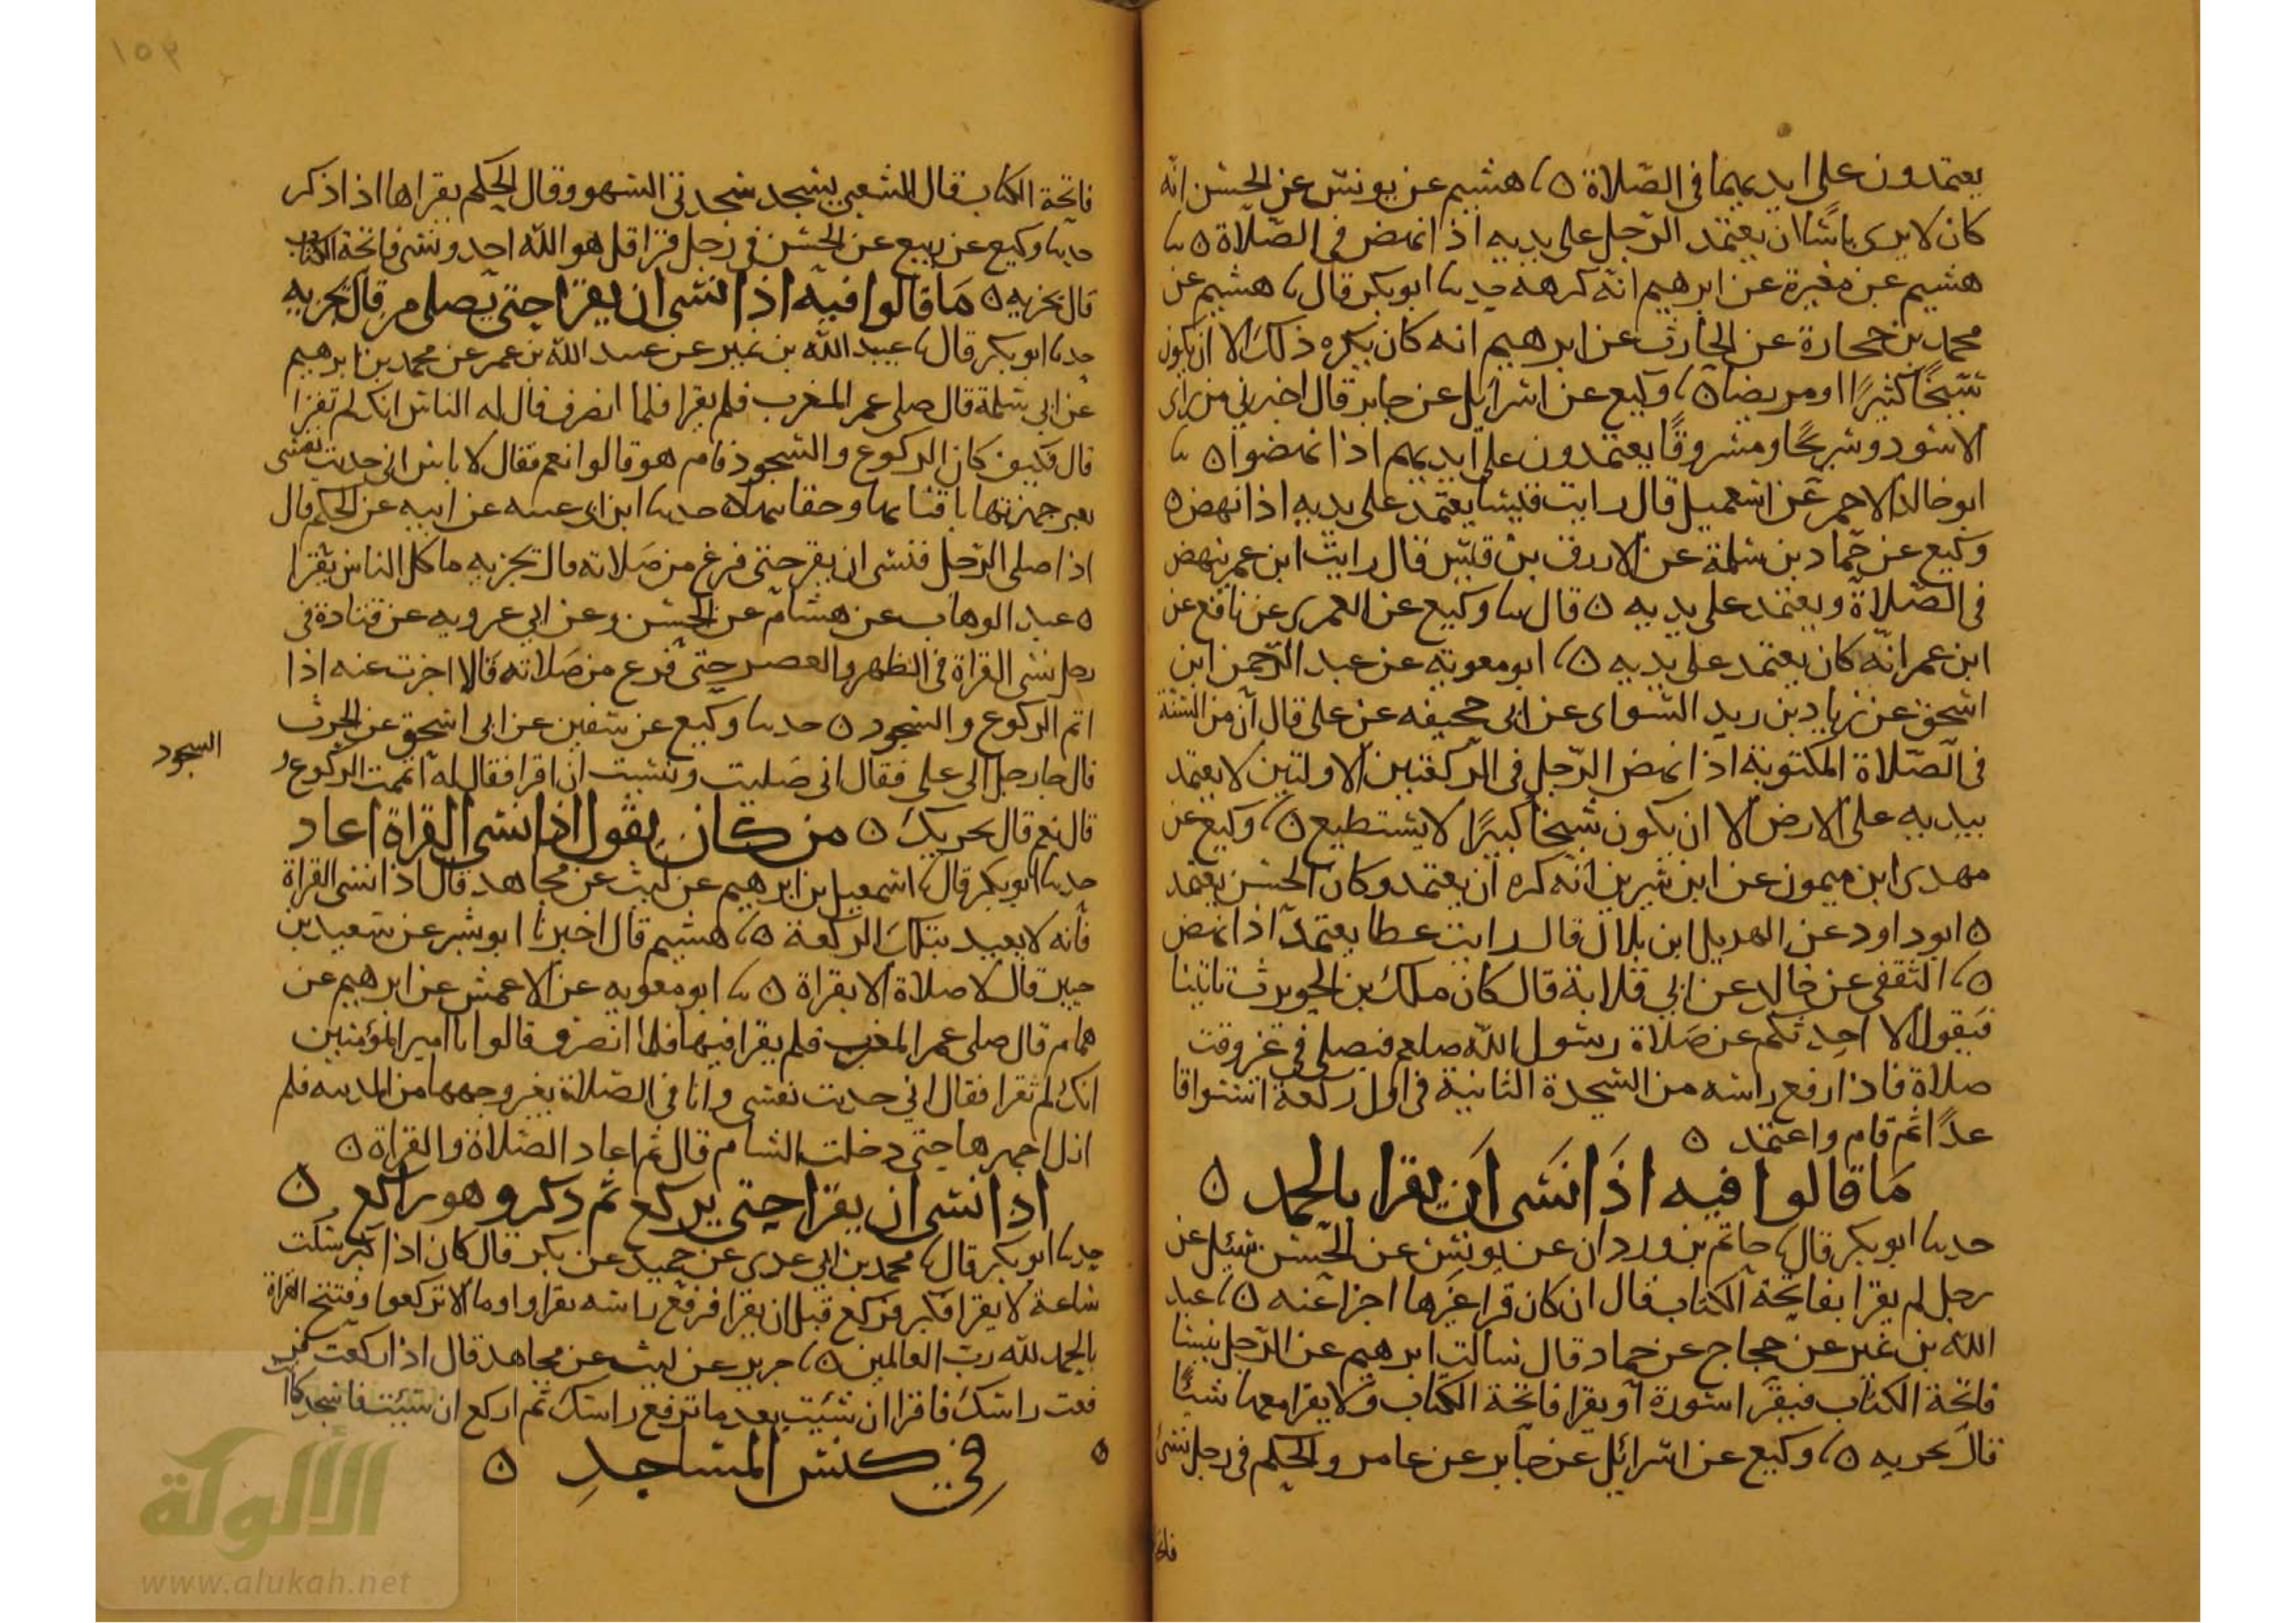 يعتمدون على ايديهما في الصلاة ٥ نا هشيم عن يونس عن الحسن انه
كان لا يرى باسا ان يعتمد الرجل على يديه اذا نهض في الصلاة ٥ نا
هشيم عن مغيرة عن ابرهيم انه كرهه حدثنا ابو بكر قال نا هشيم عن
محمد بن جحادة عن الحارث عن ابرهيم انه كان يكره ذلك الا ان يكون
شيخا كثيرا او مريضا ٥ نا وكيع عن اسرائيل عن جابر قال اخبرني من راى
الاسود وشريحا ومسروقا يعتمدون على ايديهم اذا نهضوا ٥ نا
ابو خالد الاحمر عن اسمعيل قال رايت قيسا يعتمد على يديه اذا نهض ٥
وكيع عن حماد بن سلمة عن الازرق بن قيس قال رايت ابن عمر ينهض
في الصلاة ويعتمد على يديه ٥ قال نا وكيع عن العمرى عن نافع عن
ابن عمر انه كان يعتمد على يديه ٥ نا ابو معوية عن عبد الرحمن ابن
اسحق عن زياد بن زيد السواى عن ابى جحيفه عن على قال ان من السنة
في الصلاة المكتوبة اذا نهض الرجل في الركعتين الاولتين لا يعتمد
بيديه على الارض الا ان يكون شيخا كبيرا لا يستطيع ٥ نا وكيع عن
مهدى ابن ميمون عن ابن سيرين انه كره ان يعتمد وكان الحسن يعتمد
٥ ابو داود عن الهديل ابن بلال قال رايت عطا يعتمد اذا نهض
٥ نا الثقفى عن خالد عن ابي قلابة قال كان ملك بن الحويرث ياتينا
فيقول الا احدثكم عن صلاة رسول الله صلعم فيصلي في غر وقت
صلاة فاذا رفع راسه من السجدة الثانية في اول ركعة استوا قا
عدا ثم قام واعتمد ٥
ما قالوا فيه اذا نسى ان يقرا بالحمد ٥
حدثنا ابو بكر قال نا حاتم بن وردان عن يونس عن الحسن سئيل عن
رجل لم يقرا بفاتحة الكتاب قال ان كان قرا غرها اجزا عنه ٥ نا عبد
الله بن نمير عن حجاج عن حماد قال سالت ابرهيم عن الرجل ينسا
فاتحة الكتاب فيقرا سورة او يقرا فاتحة الكتاب ولا يقرا معها شيئا
قال تجزيه ٥ نا وكيع عن اسرائيل عن جابر عن عامر والحكم في رجل نسى
فاتحة
فاتحة الكتاب قال الشعبي يسجد سجدتى السهو وقال الحكم يقراها اذا ذكر
حدثنا وكيع عن ربيع عن الحسن في رجل قرا قل هو الله احد ونسى فاتحة الكتاب
قال تجزيه ٥ ما قالوا فيه اذا نسى ان يقرا حتى يصلى من قال تجزيه
حدثنا ابو بكر قال نا عبيد الله بن نمير عن عبيد الله بن عمر عن محمد بن ابرهيم
عن ابى سلمة قال صلى عمر المغرب فلم يقرا فلما انصرف قال له الناس انك لم تقرا
قال فكيف كان الركوع والسجود قام هو قالوا نعم فقال لا باس انى حديث نفسى
بعير جهزتها باقتابها وحقائبها ٥ حدثنا ابن ابى عسه عن ابيه عن الحكم قال
اذا صلى الرجل فنسى ان يقر حتى فرغ من صلاته قال تجزيه ما كل الناس يقرا
٥ عبد الوهاب عن هشام عن الحسن وعن ابي عروبه عن قتادة في
رجل نسى القراة في الظهر والعصر حتى فرغ من صلاته قالا اجزت عنه اذا
اتم الركوع والسجود ٥ حدثنا وكيع عن سفين عن ابى اسحق عن الحرث
قال جا رجل الى على فقال انى صليت ونسيت ان اقرا فقال له اتممت الركوع و
السجود
قال نعم قال يجزيك ٥ من كان يقول اذا نسي القراة اعاد
حدثنا ابو بكر قال نا اسمعيل بن ابرهيم عن ليث عن مجاهد قال اذا نسى القراة
فانه لا يعيد بتلك الركعة ٥ نا هشيم قال اخبرنا ابو بشر عن سعيد بن
جبير قال لا صلاة الا بقراة ٥ نا ابو معويه عن الاعمش عن ابرهيم عن
همام قال صلى عمر المغرب فلم يقرا فيها فلما انصرف قالوا يا امير المؤمنين
انك لم تقرا فقال اني حديث نفسى وانا في الصلاة بعير وجهها من المدينه فلم
ازل اجهرها حتى دخلت الشام قال ثم اعاد الصلاة والقراة ٥
اذا نسى ان يقرا حتى يركع ثم ذكر وهو راكع ٥
حدثنا ابو بكر قال نا محمد بن ابي عدى عن حميد عن بكر قال كان اذا كبر سكت
ساعة لا يقرا فكبر فركع قبل ان يقرا فرفع راسه يقرا واوما الا تركعوا وفتتح القراة
بالحمد لله رب العالمين ٥ نا جرير عن ليث عن مجاهد قال اذا ركعت
فعت راسك فاقرا ان شيت بعد ما ترفع راسك ثم اركع ان شيت فاسجد كما
٥
في كنس المساجد ٥
الألوكة
www.alukah.net